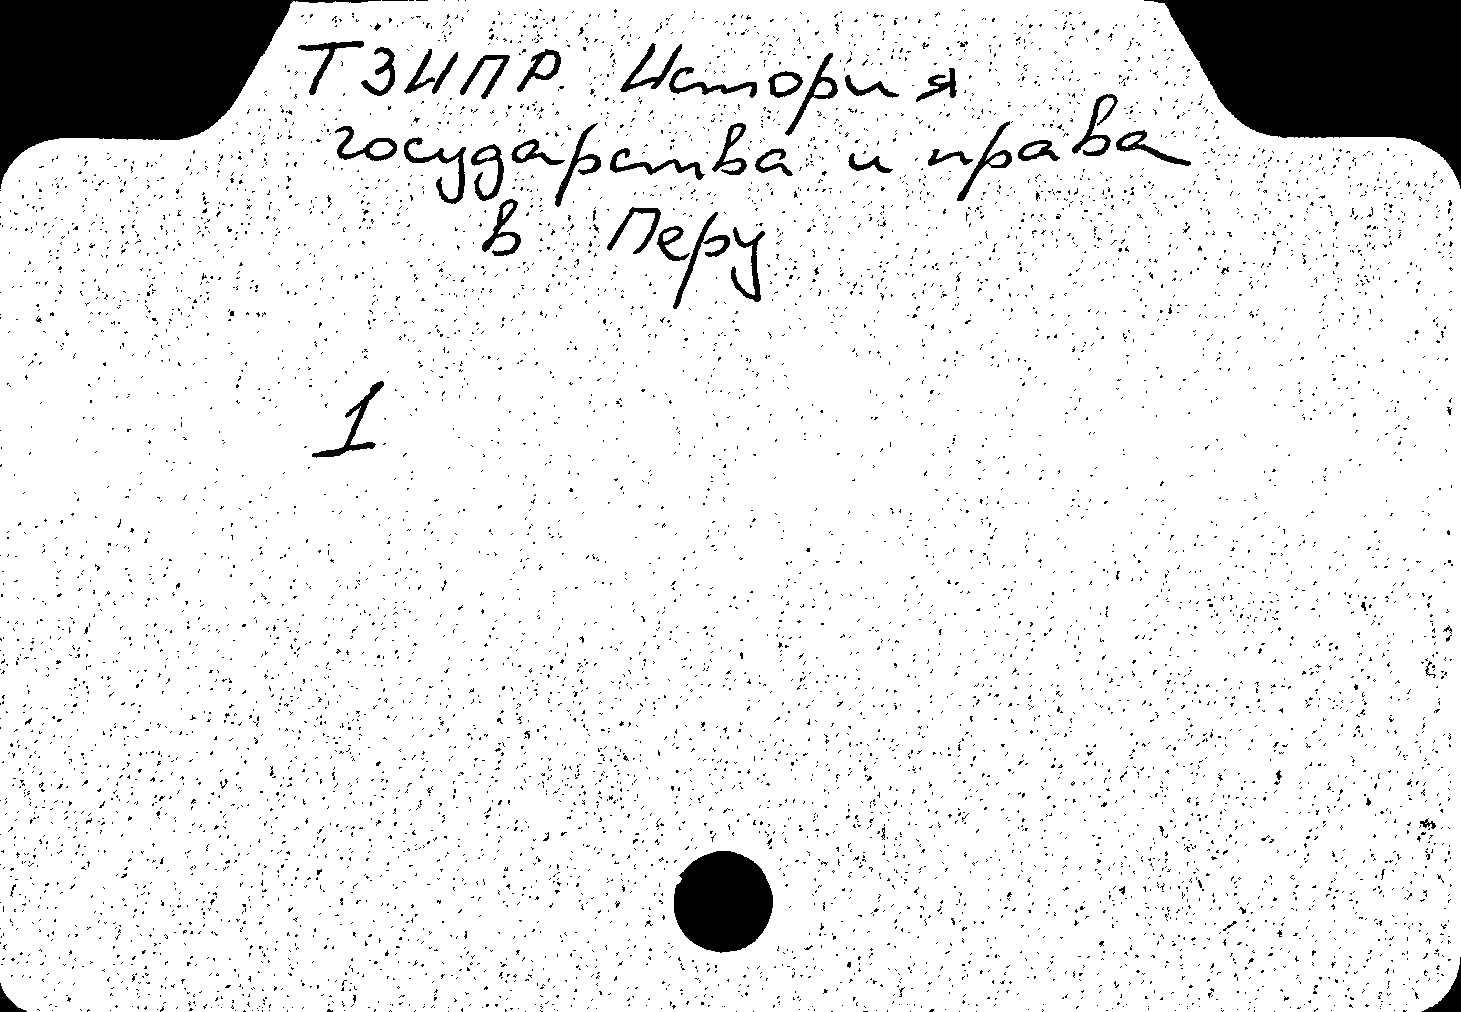 ТЗИПР История
государства и права
в Перу
1